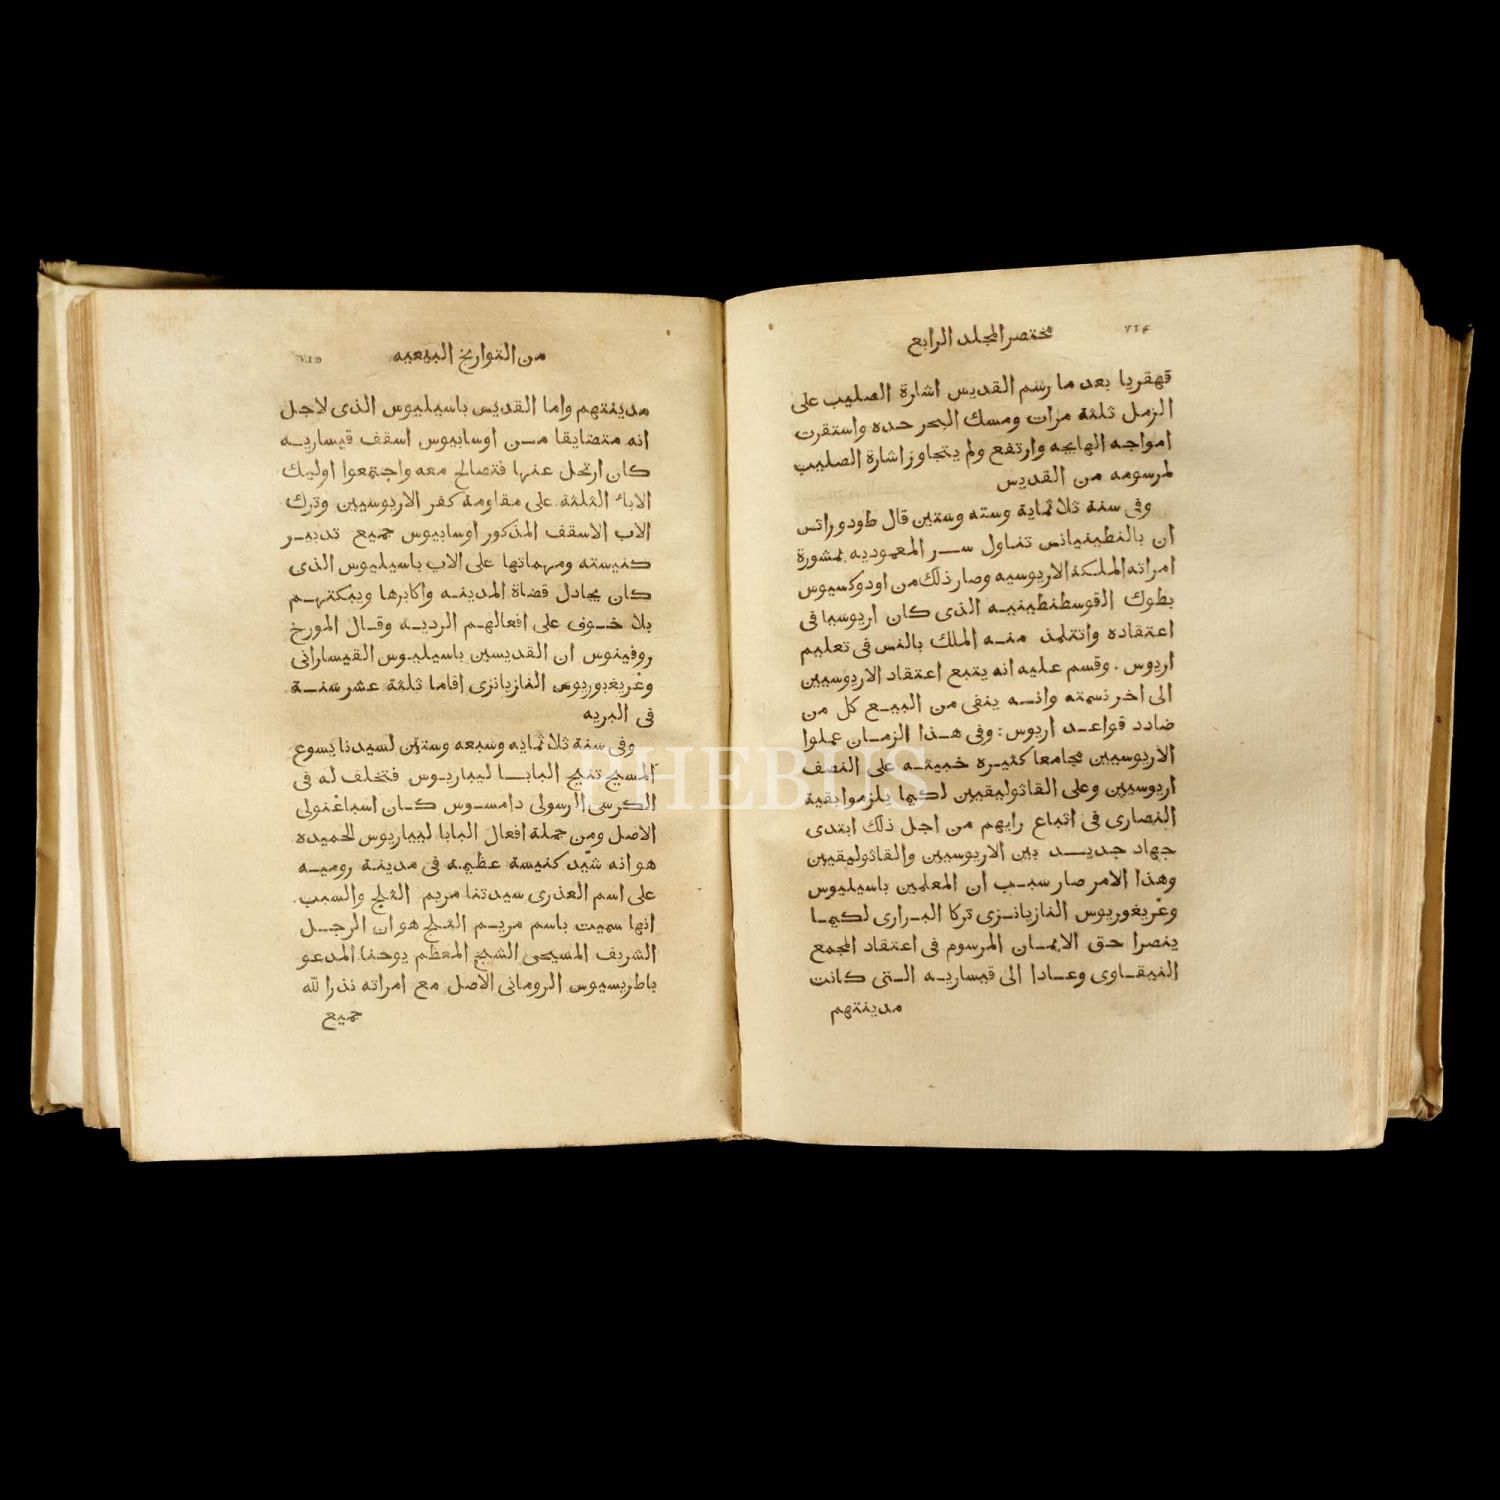 ٧١٤
مختصر المجلد الرابع
قهقريا بعد ما رسم القديس اشارة الصليب على
الرمل ثلثة مرات ومسك البحر حده واستقرت
امواجه الهايجه وارتفع ولم يتجاوز اشارة الصليب
لمرسومه من القديس
وفى سنة ثلاثماية وسته وستين قال طودوراتس
ان بالنطينيانس تناول سر المعموديه بمشورة
امراته الملكة الاريوسيه وصار ذلك من اودوكسيوس
بطرك القوسطنطينيه الذى كان اريوسيا فى
اعتقاده واتتلمذ منه الملك بالنس فى تعليم
اريوس . وقسم عليه انه يتبع اعتقاد الاريوسيين
الى اخر نسمته وانه ينفى من البيع كل من
ضادد قواعد اريوس : وفى هذا الزمان عملوا
الاريوسيين مجامعا كثيره خبيثه على النصف
اريوسيين وعلى القاثوليقيين لكيما يلزموا بقية
النصارى فى اتباع رايهم من اجل ذلك ابتدى
جهاد جديد بين الاريوسيين والقاثوليقيين
وهذا الامر صار سبب ان المعلمين باسيليوس
وغريغوريوس النازيانزى تركا البرارى لكيما
ينصرا حق الايمان المرسوم فى اعتقاد المجمع
النيقاوى وعادا الى قيساريه التى كانت
مدينتهم
من التواريخ البيعيه
٧١٥
مدينتهم واما القديس باسيليوس الذى لاجل
انه متضايقا من اوسابيوس اسقف قيساريه
كان ارتحل عنها فتصالح معه واجتمعوا اوليك
الاباء الثلثة على مقاومة كفر الاريوسيين وترك
الاب الاسقف المذكور اوسابيوس جميع تدبير
كنيسته ومهماتها على الاب باسيليوس الذى
كان يجادل قضاة المدينه واكابرها ويبكتهم
بلا خوف على افعالهم الرديه وقال المورخ
روفينوس ان القديسين باسيليوس القيسارانى
وغريغوريوس النازيانزى اقاما ثلثة عشر سنة
فى البريه
وفى سنة ثلاثمايه وسبعه وستين لسيدنا يسوع
المسيح تنيح البابا ليباريوس فتخلف له فى
الكرسى الرسولى دامسوس كان اسباغنولى
الاصل ومن جملة افعال البابا ليباريوس الحميده
هو انه شيّد كنيسة عظيمه فى مدينة روميه
على اسم العذرى سيدتنا مريم الثلج والسبب
انها سميت باسم مريم الثلج هو ان الرجل
الشريف المسيحى الشيخ المعظم يوحنا المدعو
باطريسيوس الرومانى الاصل مع امراته نذرا لله
جميع
PHEBUS